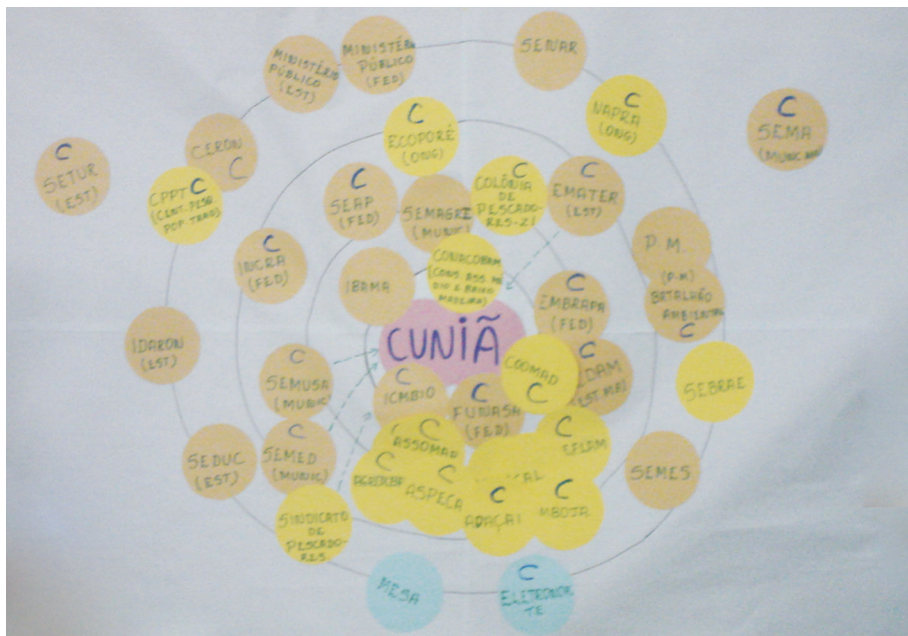 MINISTÉRIO
PÚBLICO
(EST)
MINISTÉRIO
PÚBLICO
(FED)
SENAR
C
NAPRA
(ONG)
C
SEMA
C
SETUR
(EST)
CERON
C
CPPT C
(CENT. PESQ.
POP TRAD)
C
ECOPORÉ
(ONG)
C
SEAP
(FED)
SEMAGRI
(MUNIC)
C
COLÔNIA
DE
PESCADO-
RES-Z1
C
EMATER
(EST)
P.M.
(P.M)
BATALHÃO
AMBIENTAL
C
C
INCRA
(FED)
IBAMA
CONACOBAM
(CONS. ASS. MÉ
DIO E BAIXO
MADEIRA)
C
EMBRAPA
(FED)
IDARON
(EST)
CUNIÃ
C
SEMUSA
(MUNIC)
C
ICMBIO
C
FUNASA
(FED)
COOMAD
C
C
DAM
C
SEBRAE
SEDUC
(EST)
C
SEMED
(MUNIC)
C
C
C
ASPECA
C
C
C
SEMES
SINDICATO
DE
PESCADO-
RES
MESA
C
ELETRONOR
TE